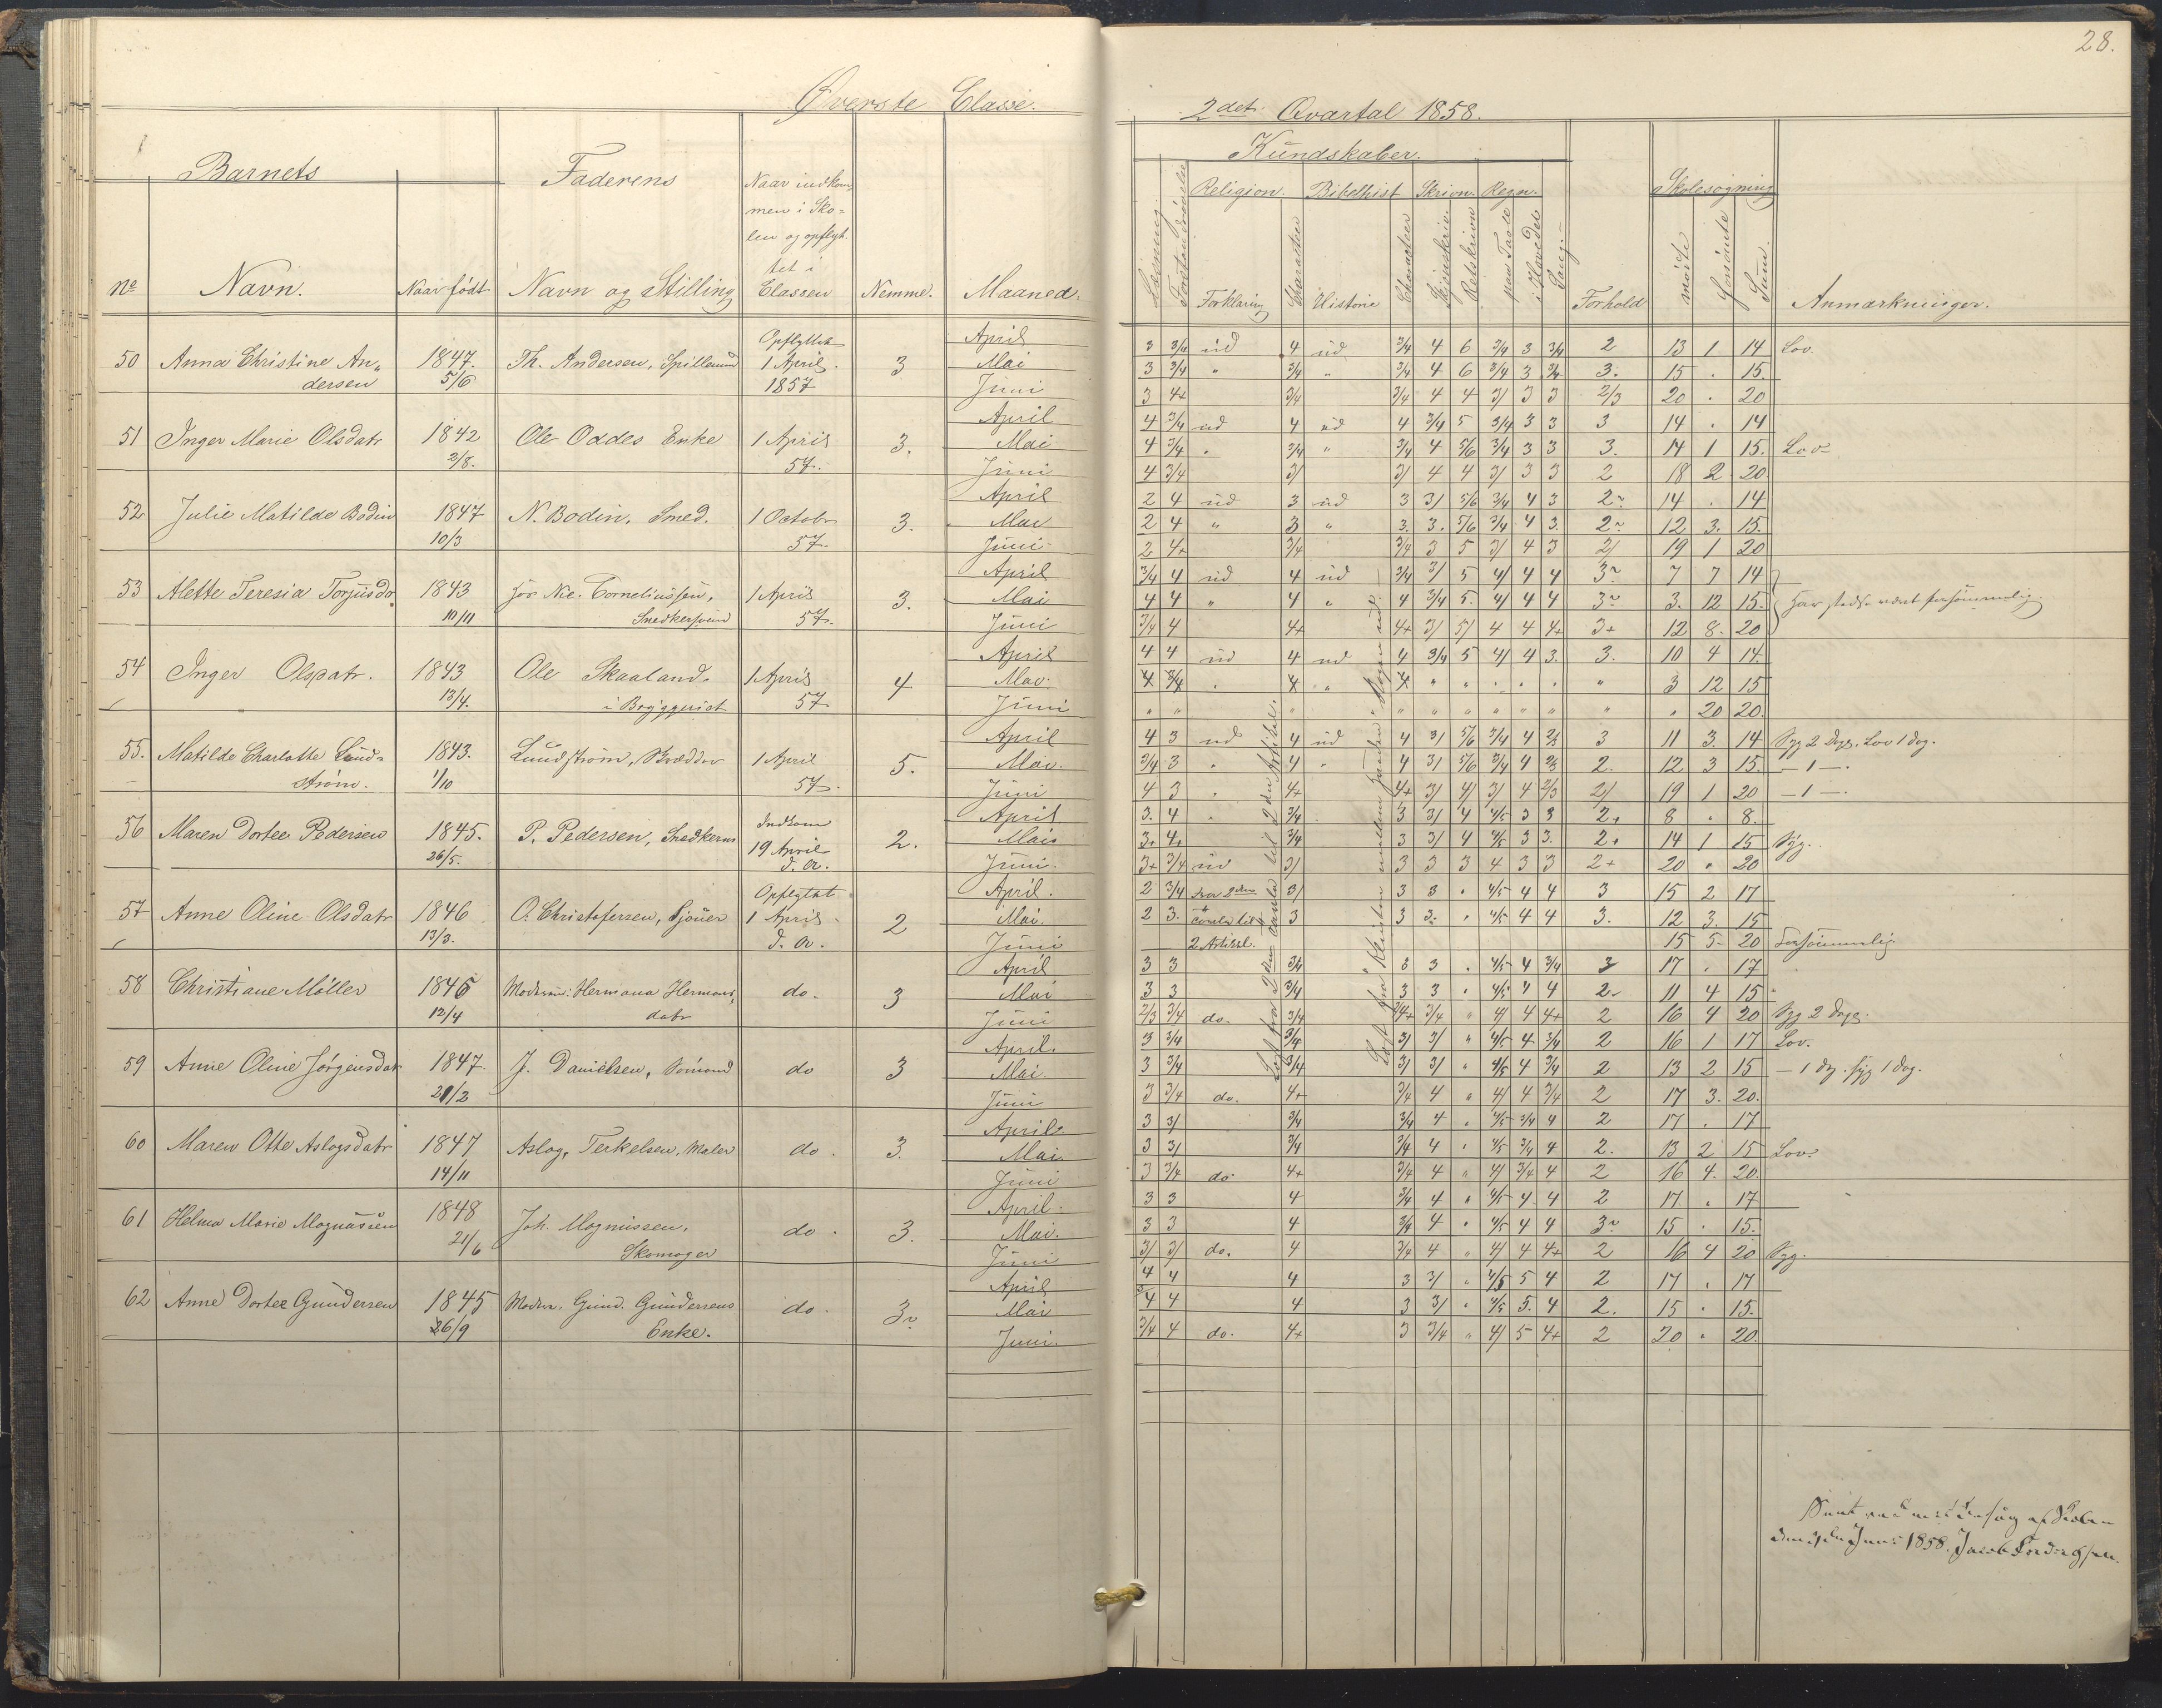 28.
Øverste Classe.
2det Qvartal 1858.
Barnets
Faderens
Naar indkom
men i Sko=
len og opflyt.
tet i
Classen
Kundskaber.
Religion. Bibelhist Skrivn. Regn.
Skolesøgning
No Navn. Naar født Navn og Stilling Nemme. Maaned.
Læsning Forstandsøvelse Forklaring Charakteer Historie Charakteer Skjønskriv. Retskrivn paa Tavle i Hovedet Sang. Forhold mødte forsømte Sum. Anmærkninger.
50 Anna Christine An„ 1847. Th. Andersen, Spillemand Opflyttet 1 April 1857 3
dersen 5/6
April 3 3/4 ud 4 ud 3/4 4 6 3/4 3 3/4 2 13 1 14 Lov.
Mai 3 3/4 " 3/4 " 3/4 4 6 3/4 3 3/4 3. 15 . 15.
Juni 3 4+ 3/4 3/4 4 4 3/ 3 3 2/3 20 . 20
51 Inger Marie Olsdatr 1842 Ole Oddes Enke 1 April 57. 3.
2/8.
April 4 3/4 ud 4 ud 4 3/4 5 3/4 3 3 3 14 . 14
Mai 4 3/4 " 3/4 " 3/4 4 5/6 3/4 3 3 3. 14 1 15. Lov
Juni 4 3/4 3/ 3/ 4 4 3/ 3 3 2 18 2 20
52 Julie Matilde Bodin 1847 N. Bodin, Smed. 1 Octobr 57. 3.
10/3
April 2 4 ud 3 ud 3 3/ 5/6 3/4 4 3 2 14 . 14
Mai 2 4 " 3 " 3. 3. 5/6 3/4 4 3. 2 12 3. 15.
Juni 2 4+ 3/4 3/4 3 5 3/ 4 3 2/ 19 1 20
53 Alette Teresia Torjusdo 1843 Jør Nic. Corneliussen, 1 April 57. 3.
10/11 Snedkersvend
April 3/4 4 ud 4 ud 3/4 3/ 5 4/ 4 4 3 7 7 14
Mai 4 4 " 4 " 4 3/4 5. 4/ 4 4 3 3. 12 15. Har stedse været forsømmelig.
Juni 3/4 4 4+ 4+ 3/ 5/ 4 4 4+ 3+ 12 8. 20
54 Inger Olsdatr. 1843 Ole Skaaland 1 April 57 4
13/4. i Bryggeriet
April 4 4 ud 4 ud 4 3/4 5 4/ 4 3. 3. 10 4 14.
Mai 4 3/4 . 4 " 4 " " . . . " 3 12 15
Juni " " " " " " " " " " . 20 20.
55. Matilde Charlotte Lund= 1843. Lundstrøm, Skrædder 1 April 57. 5.
strøm. 1/10
April 4 3 ud 4 ud 4 3/ 5/6 3/4 4 2/3 3 11 3. 14 Syg 2 Dage, Lov 1 dag.
Mai 3/4 3 . 4 . 4 3/ 5/6 3/4 4 2/3 2. 12 3 15. — 1 —.
Juni 4 3 . 4+ 4+ 3/ 4/ 3/ 4 2/3 2/ 19 1 20 — 1 —.
56 Maren Dortee Pedersen 1845. P. Pedersen, Snedkersv Indkom 19 April d. A. 2.
26/5.
April 3. 4 . 3/4 3 3/ 4 4/5 3 3 2+ 8 . 8.
Mai 3+ 4+ 3/4 3 3/ 4 4/5 3 3. 2+ 14 1 15 Syg.
Juni. 3+ 3/4 ud 3/ 3 3 3 4 3 3 2+ 20 " 20
57 Anne Oline Olsdatr 1846 O. Christofersen, Sjouer Opflyttet 1 April d. A. 2
13/3.
April. 2 3/4 fra 2den 3/ 3 3 . 4/5 4 4 3 15 2 17
Mai. 2 3. til 3 3 3. . 4/5 4 4 3. 12 3. 15
Juni 2 Artikel. 15 5 20 Forsømmelig
58 Christiane Møller 1845 Moderen: Hermana Hermans, do. 3
12/4 datr
April 3 3 3/4 3 3 . 4/5 4 3/4 3 17 . 17
Mai 3 3 3/4 3 3 . 4/5 4 4 2 11 4 15
Juni 2/3 3/4 do. 3/4 3/4+ 3/4 " 4/ 4 4+ 2 16 4 20 Syg 2 Dage.
59 Anne Oline Jørgensdat 1847. J. Danielsen, Sømand do 3
21/2
April. 3 3/4 3/4 3/ 3/ " 4/5 4 3/4 2 16 1 17 Lov.
Mai. 3 3/4 3/4 3/ 3/ . 4/5 4 3/4 2 13 2 15 — 1 dg. syg 1 dag.
Juni 3 3/4 do. 4+ 3/4 4 " 4/ 4 3/4 2 17 3. 20.
60 Maren Otte Aslagsdatr 1847 Aslag, Terkelsen, Maler do. 3.
14/11
April 3 3/ 3/4 3/4 4 . 4/5 3/4 4 2 17 . 17
Mai. 3 3/ 3/4 3/4 4 . 4/5 3/4 4 2. 13 2 15 Lov.
Juni 3 3/4 do. 4+ 3/4 4 " 4/ 3/4 4 2 16 4. 20.
61 Helma Marie Magnussen 1848 Joh. Magnussen, do. 3.
21/6 Skomager
April. 3 3 4 3/4 4 . 4/5 4 4 2 17 . 17
Mai. 3 3 4 3/4 4 . 4/5 4 4 3 15 . 15.
Juni 3/ 3/ do. 4 3/4 4 " 4/ 4 4+ 2 16 4 20 Syg.
62 Anne Dortee Gundersen 1845 Moder. Gund. Gundersens do. 3
26/9 Enke.
April 4 4 4 3 3/ . 4/5 5 4 2 17 . 17
Mai 4 4 4 3 3/ . 4/5 5. 4 2. 15 . 15.
Juni. 3/4 4 do. 4+ 3 3/4 " 4/ 5 4+ 2 20 . 20.
af Skolen
Juni 1858. Jacob